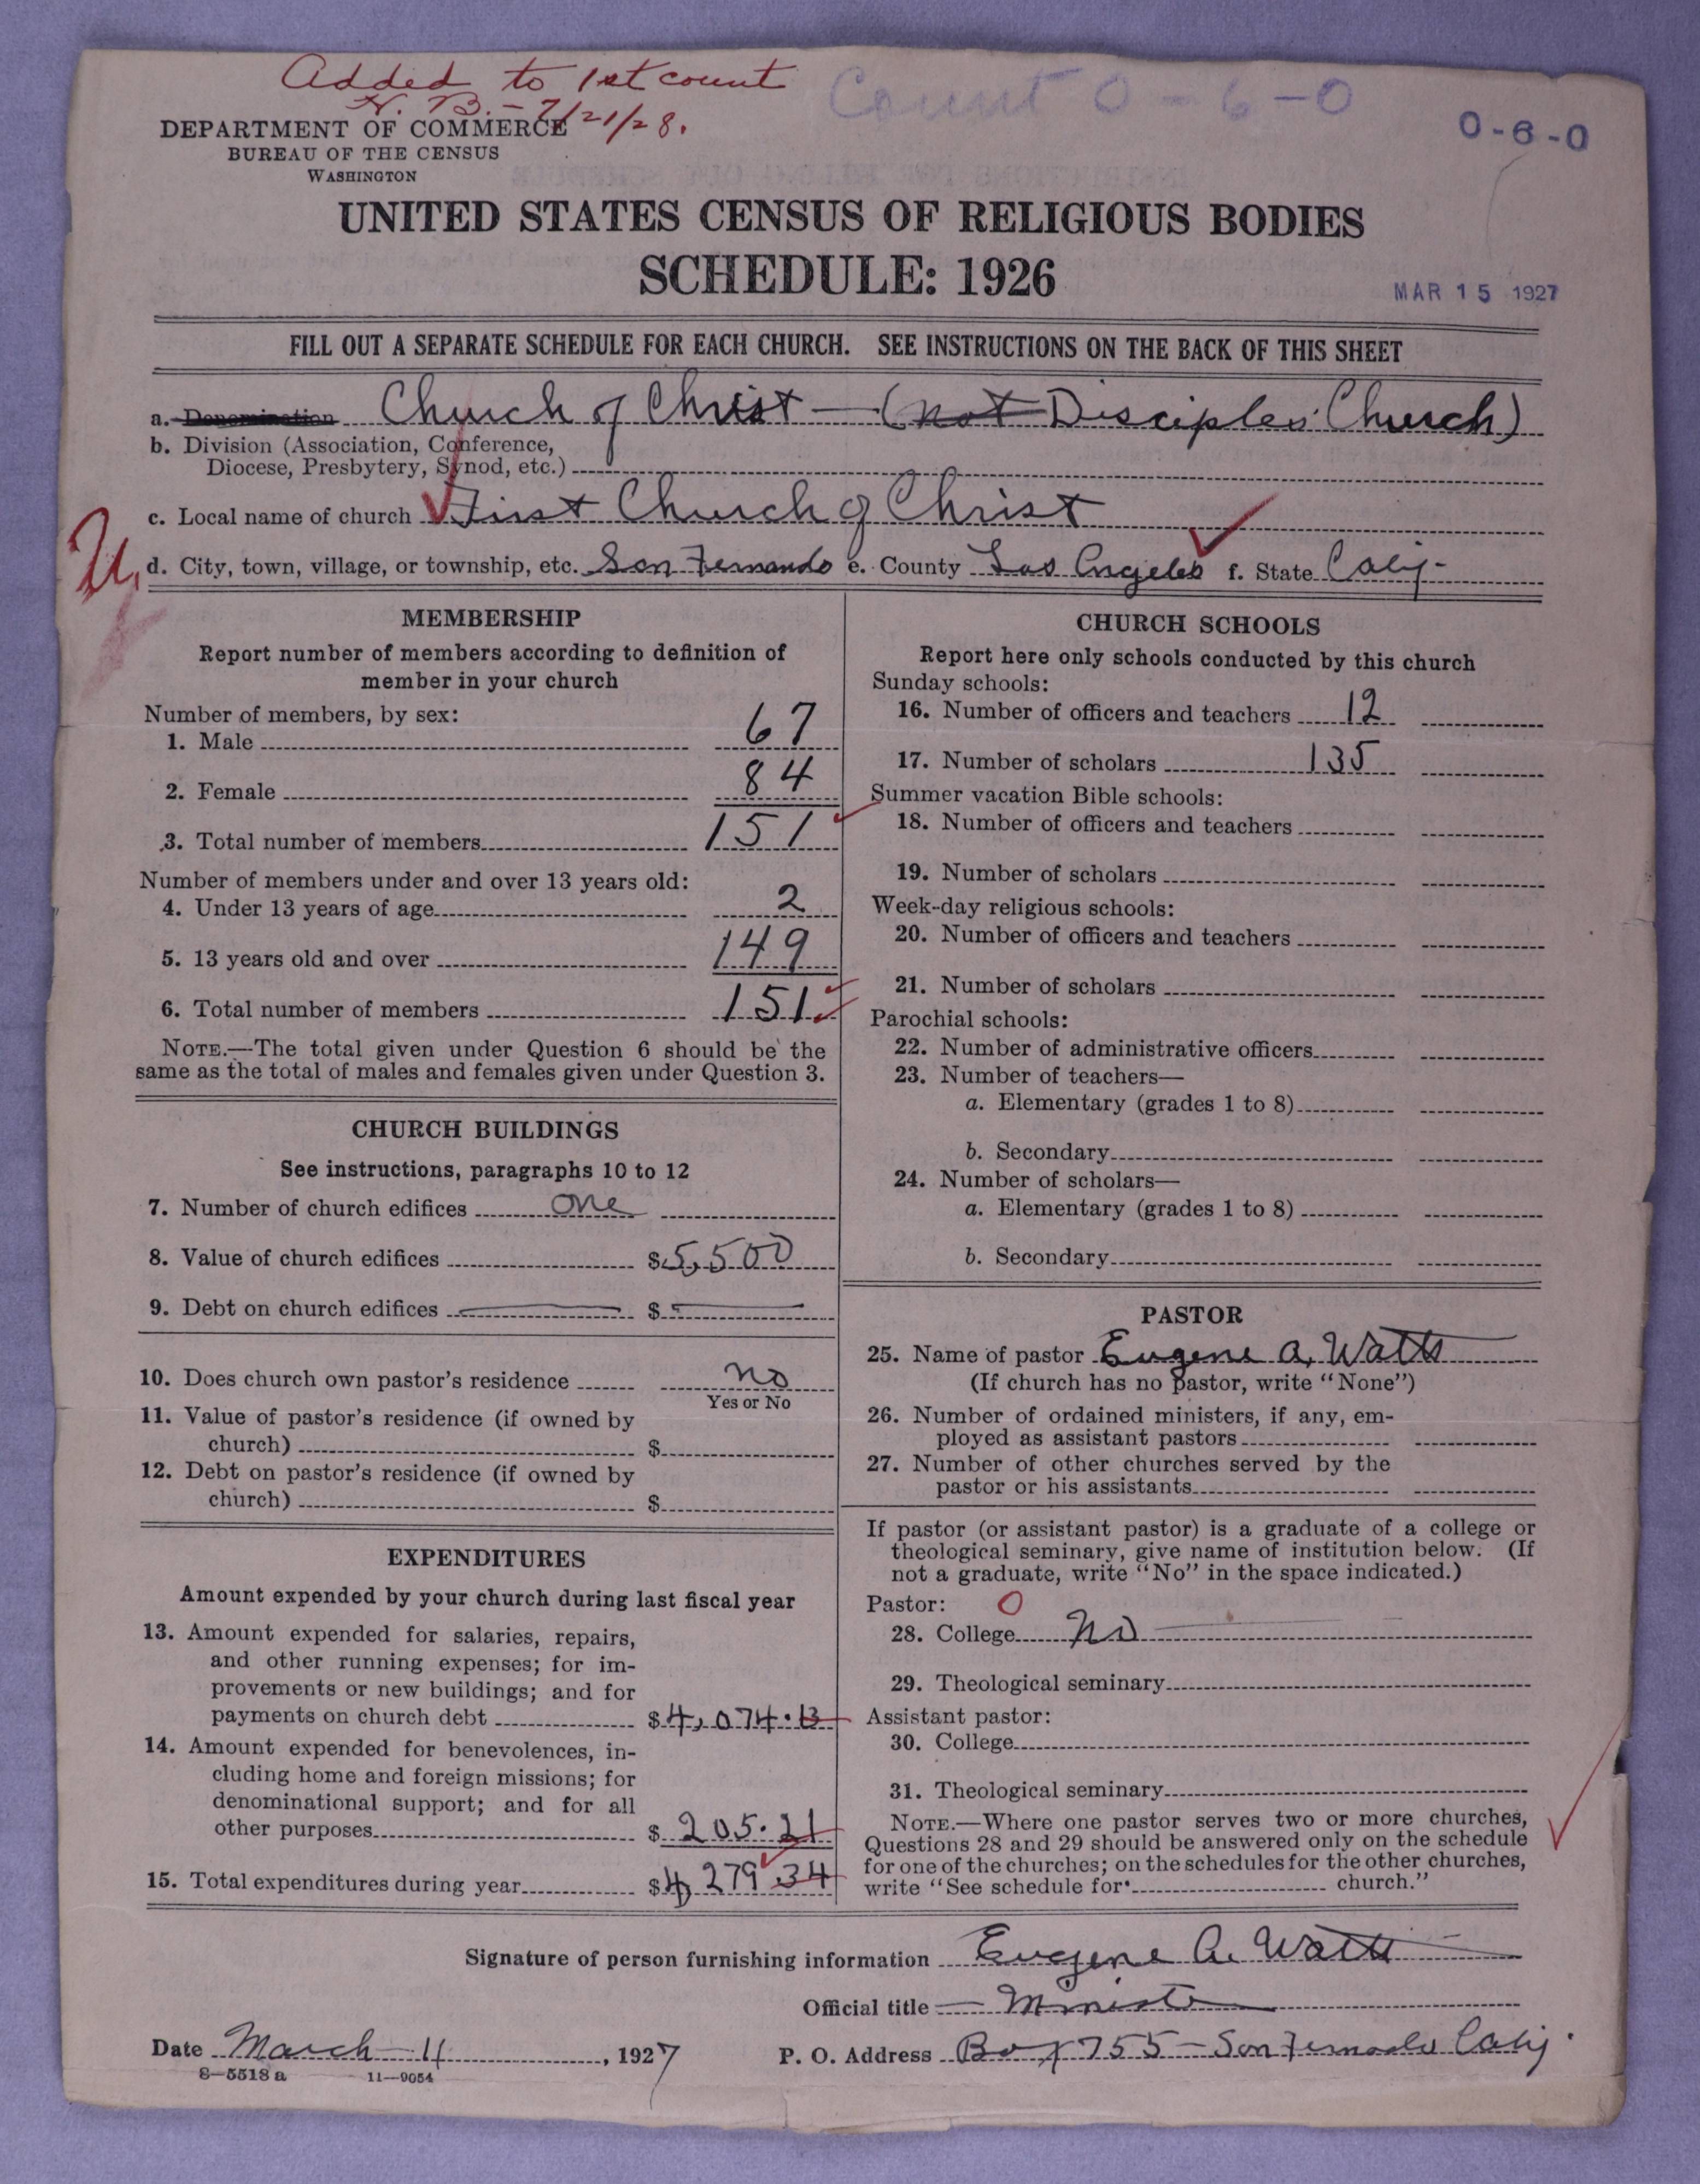 Added to 1st count
H. B. - 7/21/28.
Count 0-6-0
0-6-0
DEPARTMENT OF COMMERCE
BUREAU OF THE CENSUS
WASHINGTON
UNITED STATES CENSUS OF RELIGIOUS BODIES
SCHEDULE: 1926
MAR 15 1927
FILL OUT A SEPARATE SCHEDULE FOR EACH CHURCH. SEE INSTRUCTIONS ON THE BACK OF THIS SHEET
a. Denomination Church of Christ — (not Disciples Church)
b. Division (Association, Conference,
Diocese, Presbytery, Synod, etc.)
c. Local name of church First Church of Christ
d. City, town, village, or township, etc. San Fernando e. County Los Angeles f. State Calif.
MEMBERSHIP
Report number of members according to definition of
member in your church
Number of members, by sex:
1. Male 67
2. Female 84
3. Total number of members 151
Number of members under and over 13 years old:
4. Under 13 years of age 2
5. 13 years old and over 149
6. Total number of members 151
NOTE.—The total given under Question 6 should be the
same as the total of males and females given under Question 3.
CHURCH BUILDINGS
See instructions, paragraphs 10 to 12
7. Number of church edifices one
8. Value of church edifices $5,500
9. Debt on church edifices — $ —
10. Does church own pastor's residence no
Yes or No
11. Value of pastor's residence (if owned by
church) $
12. Debt on pastor's residence (if owned by
church) $
EXPENDITURES
Amount expended by your church during last fiscal year
13. Amount expended for salaries, repairs,
and other running expenses; for im-
provements or new buildings; and for
payments on church debt $4,074.13
14. Amount expended for benevolences, in-
cluding home and foreign missions; for
denominational support; and for all
other purposes $205.21
15. Total expenditures during year $4,279.34
CHURCH SCHOOLS
Report here only schools conducted by this church
Sunday schools:
16. Number of officers and teachers 12
17. Number of scholars 135
Summer vacation Bible schools:
18. Number of officers and teachers
19. Number of scholars
Week-day religious schools:
20. Number of officers and teachers
21. Number of scholars
Parochial schools:
22. Number of administrative officers
23. Number of teachers—
a. Elementary (grades 1 to 8)
b. Secondary
24. Number of scholars—
a. Elementary (grades 1 to 8)
b. Secondary
PASTOR
25. Name of pastor Eugene A. Watts
(If church has no pastor, write "None")
26. Number of ordained ministers, if any, em-
ployed as assistant pastors
27. Number of other churches served by the
pastor or his assistants
If pastor (or assistant pastor) is a graduate of a college or
theological seminary, give name of institution below. (If
not a graduate, write "No" in the space indicated.)
Pastor: 0
28. College No
29. Theological seminary
Assistant pastor:
30. College
31. Theological seminary
NOTE.—Where one pastor serves two or more churches,
Questions 28 and 29 should be answered only on the schedule
for one of the churches; on the schedules for the other churches,
write "See schedule for church."
Signature of person furnishing information Eugene A. Watts
Official title — Minister
Date March 11, 1927
P. O. Address Box 755 - San Fernando Calif.
8—5518 a 11—9054